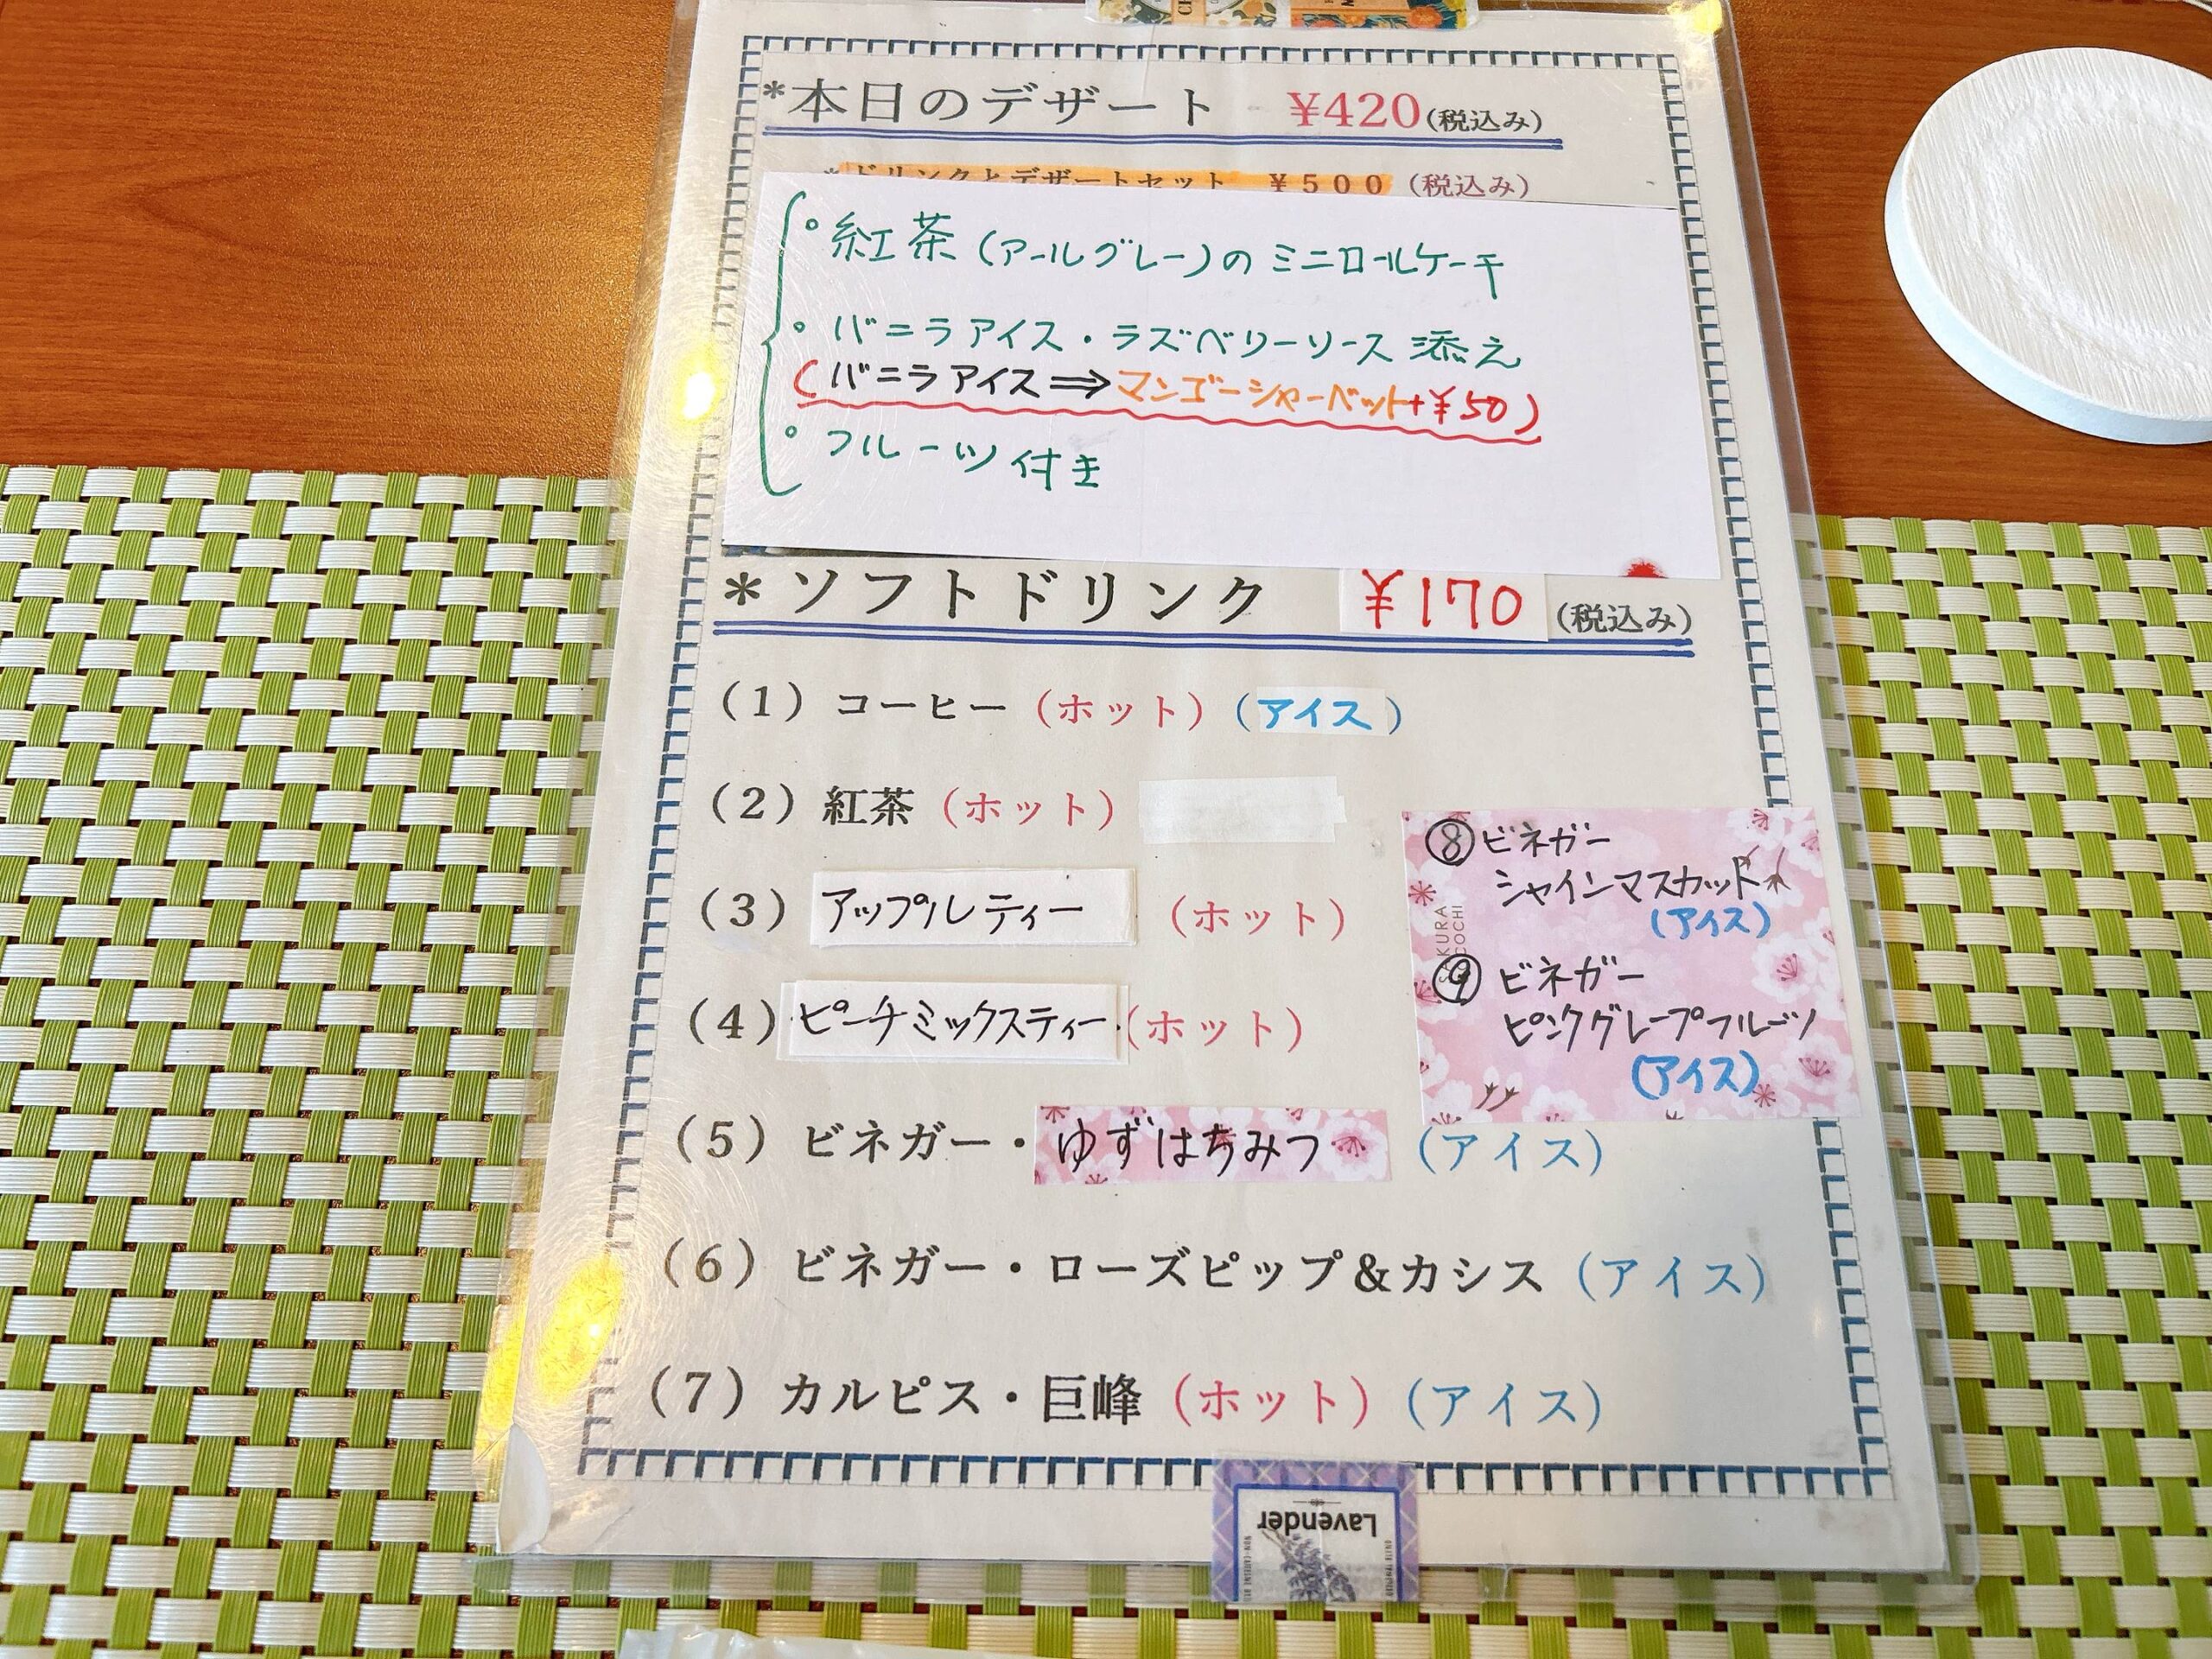 *本日のデザート ¥420(税込み)
*ドリンクとデザートセット ¥500 (税込み)
°紅茶(アールグレー)のミニロールケーキ
°バニラアイス・ラズベリーソース添え
(バニラアイス⇒マンゴーシャーベット+¥50)
°フルーツ付き
*ソフトドリンク ¥170 (税込み)
(1) コーヒー (ホット) (アイス)
(2) 紅茶 (ホット)
(3) アップルティー (ホット)
(4) ピーチミックスティー (ホット)
(5) ビネガー・ゆずはちみつ (アイス)
(6) ビネガー・ローズピップ&カシス (アイス)
(7) カルピス・巨峰 (ホット) (アイス)
⑧ビネガー
シャインマスカット
(アイス)
⑨ビネガー
ピンクグレープフルーツ
(アイス)
Lavender